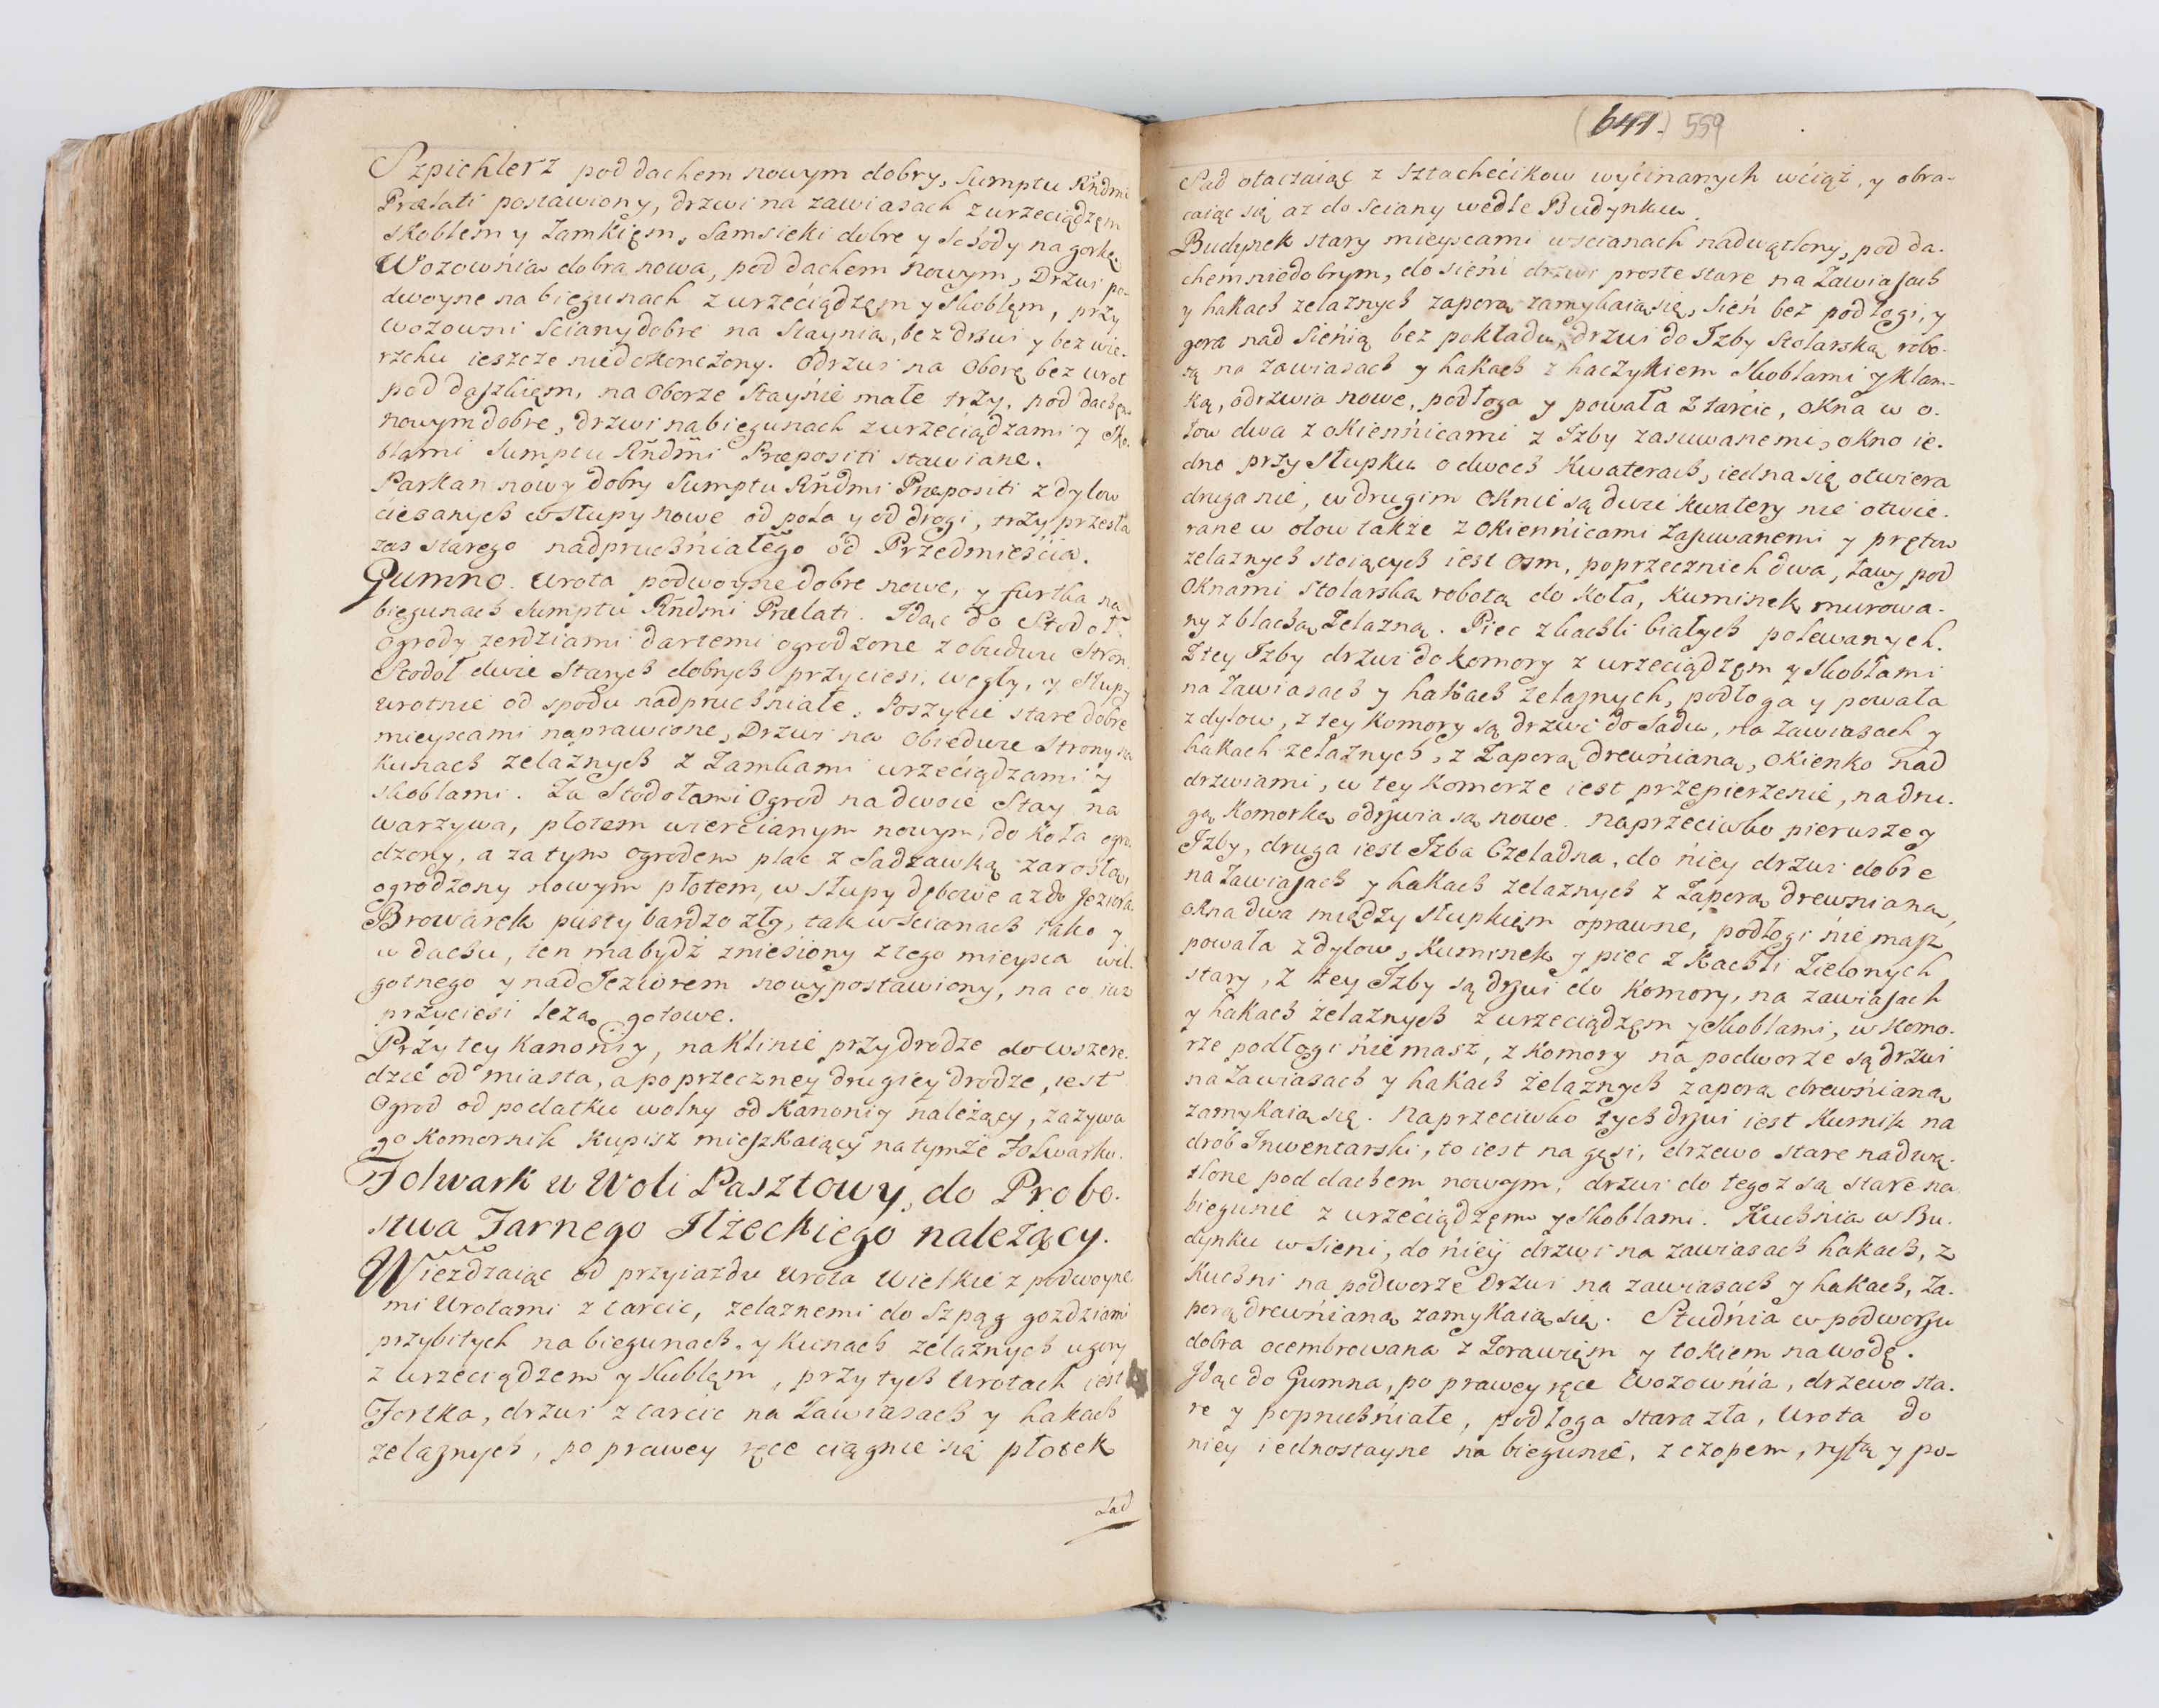 Szpichlerz pod dachem nowym dobry, sumptu Rñdmi
Prælati postawiony, drzwi na zawiasach z wrzeciądzęm
skoblem y zamkięm, samsieki dobre y schody na gorkę.
Wozownia dobra nowa, pod dachem nowym, Drzwi po-
dwoyne na biegunach z wrzeciądzęm y skoblęm, przy
wozowni sciany dobre na staynia, bez drzwi y bez wie-
rzchu ieszcze niedokonczony. Odrzwi na Oborę bez wrot
pod daszkięm, na Oborze stáynie małe trzy, pod dachęm
nowym dobre, drzwi na biegunach z wrzeciądzami y sko-
blami sumptu Rñdmi Præpositi stawiane.
Parkan nowy dobry sumptu Rñdmi Præpositi z dylow
ciesanych w słupy nowe od pola y od drogi, trzy przęsła
zas starego nadpruchniałego od Przedmieścia.
Gumno. wrota podwoyne dobre nowe, y furtka na
biegunach sumptu Rñdmi Prælati. Idąc do Stodoł
Ogrody zerdziami dartemi ogrodzone z obudwu stron.
Stodoł dwie starych dobrych przyciesi, węgły, y słupy
wrotnie od spodu nadpruchniałe, Poszycie stare dobre
mieyscami naprawione, Drzwi na obiedwie strony na
kunach zelaznych z zamkami wrzeciądzami y
skoblami. Za Stodołami Ogrod na dwoie stay na
warzywa, płotem wiercianym nowym do koła ogro-
dzony, a za tym ogrodem plac z sadzawką zarosłą,
ogrodzony nowym płotem, w słupy dębowe az do Jeziora.
Browarek pusty bardzo zły, tak w scianach iako y
w dachu, ten ma bydź zniesiony z tego mieysca wil-
gotnego y nad Jeziorem nowy postawiony, na co iuz
przyciesi leżą gotowe.
Przy tey Kanonij, na klinie przy drodze do wsze
dzie od miasta, a poprzeczney drugiey drodze, iest
Ogrod od podatku wolny od Kanoniy należący, zazywa
go Komornik Kupisz mieszkaiący na tymże Folwarku.
Folwark w Woli Pasztowy, do Probo-
stwa Farnego Iłżeckiego należący.
Wiezdzaiąc od przyiazdu wrota wielkie z podwoyne-
mi wrotami z tarcic, zelaznemi do szpąg gozdziami
przybitych na biegunach, y kunach zelaznych u gory
z wrzeciądzem y skoblęm, przy tych wrotach iest
Fortka, drzwi z tarcic na zawiasach y hakach
zelaznych, po prawey ręce ciągnie się płotek
Sad
(641.) 559
Sad otaczaiąc z sztachecikow wyćinanych wciąż, y obra-
caiąc się aż do sciany wedle Budynku.
Budynek stary mieyscami w scianach nadwątlony, pod da-
chem niedobrym, do sieni drzwi proste stare na zawiasach
y hakach zelaznych zaporą zamykaią się, sień bez podłogi, y
gora nad Sienią bez pokładu, drzwi do Izby stolarską robo-
tą na zawiasach y hakach z haczykiem skoblami y klam-
ką, odrzwia nowe, podłoga y powała z tarcic, okna w o-
łow dwa z okiennicami z Izby zasuwanemi, okno ie-
dno przy słupku o dwoch kwaterach, iedna się otwiera
druga nie, w drugim oknie są dwie kwatery nie otwie-
rane w ołow także z okiennicami zasuwanemi y prętow
zelaznych stoiących iest osm, poprzecznich dwa, ławy pod
oknami stolarską robotą do koła, Kuminek murowa-
ny z blachą Zelazną. Piec z kachli białych polewanych.
Z tey Izby drzwi do komory z wrzeciądzęm y skoblami
na zawiasach y hakach zelaznych, podłoga y powała
z dylow, z tey komory są drzwi do sadu, na zawiasach y
hakach zelaznych, z zaporą drewnianą, okienko nad
drzwiami, w tey komorze iest przepierzenie, na dru-
gą komorkę odrzwia są nowe. Naprzeciwko pierwszey
Izby, druga iest Izba Czeladna, do niey drzwi dobre
na zawiasach y hakach zelaznych z zaporą drewnianą,
okna dwa między słupkięm oprawne, podłogi nie masz
powała z dylow, kuminek y piec z kachli zielonych
stary, z tey Izby są drzwi do komory, na zawiasach
y hakach żelaznych z wrzeciądzęm y skoblami, w komo-
rze podłogi nie masz, z komory na podworze są drzwi
na zawiasach y hakach żelaznych zaporą drewnianą
zamykaią się. Naprzeciwko tych drzwi iest Kurnik na
drob Inwentarski, to iest na gęsi, drzewo stare nadwą-
tlone pod dachem nowym, drzwi do tegoż są stare na
biegunie z wrzeciądzęm y skoblami. Kuchnia w Bu-
dynku w sieni, do niey drzwi na zawiasach hakach, z
Kuchni na podworze drzwi na zawiasach y hakach, za-
porą drewnianą zamykaią się. Studnia w podworzu
dobra ocembrowana z zorawięm y tokiem na wodę.
Idąc do Gumna, po prawey ręce wozownia, drzewo sta-
re y popruchniałe, podłoga stara zła, wrota do
niey iednostayne na biegunie, z czopem, ryfą y po-